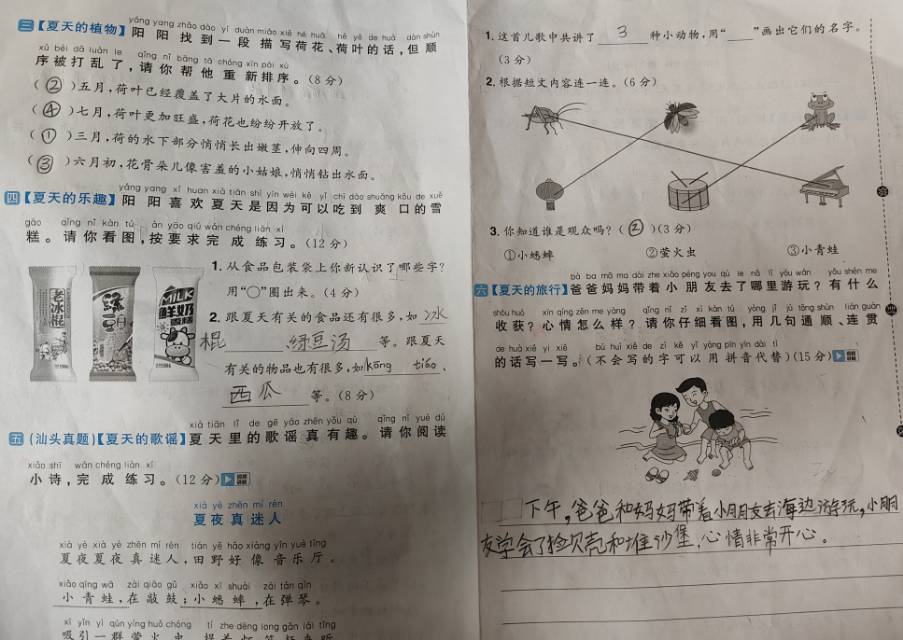 yáng yang zhǎo dào yí duàn miáo xiě hé huā hé yè de huà dàn shùn
三【夏天的植物】阳阳找到一段描写荷花、荷叶的话,但顺
xù bèi dǎ luàn le qǐng nǐ bāng tā chóng xīn pái xù
序被打乱了,请你帮他重新排序。(8分)
(②)五月,荷叶已经覆盖了大片的水面。
(④)七月,荷叶更加旺盛,荷花也纷纷开放了。
(①)三月,荷的水下部分悄悄长出嫩茎,伸向四周。
(③)六月初,花骨朵儿像害羞的小姑娘,悄悄钻出水面。
yáng yang xǐ huan xià tiān shì yīn wèi kě yǐ chī dào shuǎng kǒu de xuě
四【夏天的乐趣】阳阳喜欢夏天是因为可以吃到爽口的雪
gāo qǐng nǐ kàn tú àn yāo qiú wán chéng liàn xí
糕。请你看图,按要求完成练习。(12分)
老冰棍
MILK
鲜奶
1. 从食品包装袋上你新认识了哪些字?
用“○”圈出来。(4分)
2. 跟夏天有关的食品还有很多,如 冰
棍、绿豆汤 等。跟夏天
有关的物品也有很多,如 kōng tiáo、
西瓜 等。(8分)
xià tiān lǐ de gē yáo zhēn yǒu qù qǐng nǐ yuè dú
五(汕头真题)【夏天的歌谣】夏天里的歌谣真有趣。请你阅读
xiǎo shī wán chéng liàn xí
小诗,完成练习。(12分)
xià yè zhēn mí rén
夏夜真迷人
xià yè xià yè zhēn mí rén tián yě hǎo xiàng yīn yuè tīng
夏夜夏夜真迷人,田野好像音乐厅。
xiǎo qīng wā zài qiāo gǔ xiǎo xī shuài zài tán qín
小青蛙,在敲鼓;小蟋蟀,在弹琴。
xī yǐn yì qún yíng huǒ chóng tí zhe dēng long gǎn lái tīng
吸引一群萤火虫,提着灯笼赶来听
1. 这首儿歌中共讲了 3 种小动物,用“____”画出它们的名字。
(3分)
2. 根据短文内容连一连。(6分)
3. 你知道谁是观众吗?(②)(3分)
①小蟋蟀 ②萤火虫 ③小青蛙
bà ba mā ma dài zhe xiǎo péng you qù le nǎ lǐ yóu wán yǒu shén me
六【夏天的旅行】爸爸妈妈带着小朋友去了哪里游玩?有什么
shōu huò xīn qíng zěn me yàng qǐng nǐ zǐ xì kàn tú yòng jǐ jù tōng shùn lián guàn
收获?心情怎么样?请你仔细看图,用几句通顺、连贯
de huà xiě yi xiě bú huì xiě de zì kě yǐ yòng pīn yīn dài tì
的话写一写。(不会写的字可以用拼音代替)(15分)
下午,爸爸和妈妈带着小朋友去海边游玩,小朋
友学会了捡贝壳和堆沙堡,心情非常开心。